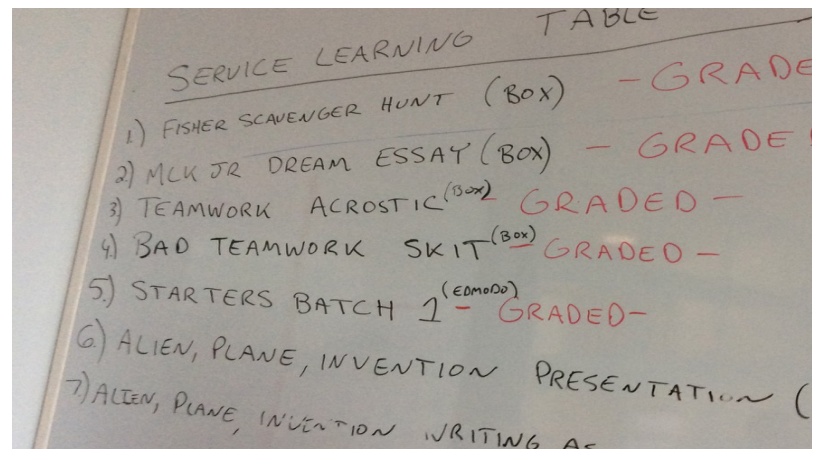 SERVICE LEARNING TABLE
1) FISHER SCAVENGER HUNT (BOX) - GRADE
2) MLK JR DREAM ESSAY (BOX) - GRADE
3) TEAMWORK ACROSTIC (BOX) - GRADED -
4) BAD TEAMWORK SKIT (BOX) - GRADED -
5.) STARTERS BATCH 1 (EDMODO) - GRADED -
6.) ALIEN, PLANE, INVENTION PRESENTATION (
7) ALIEN, PLANE, INVENTION WRITING AS